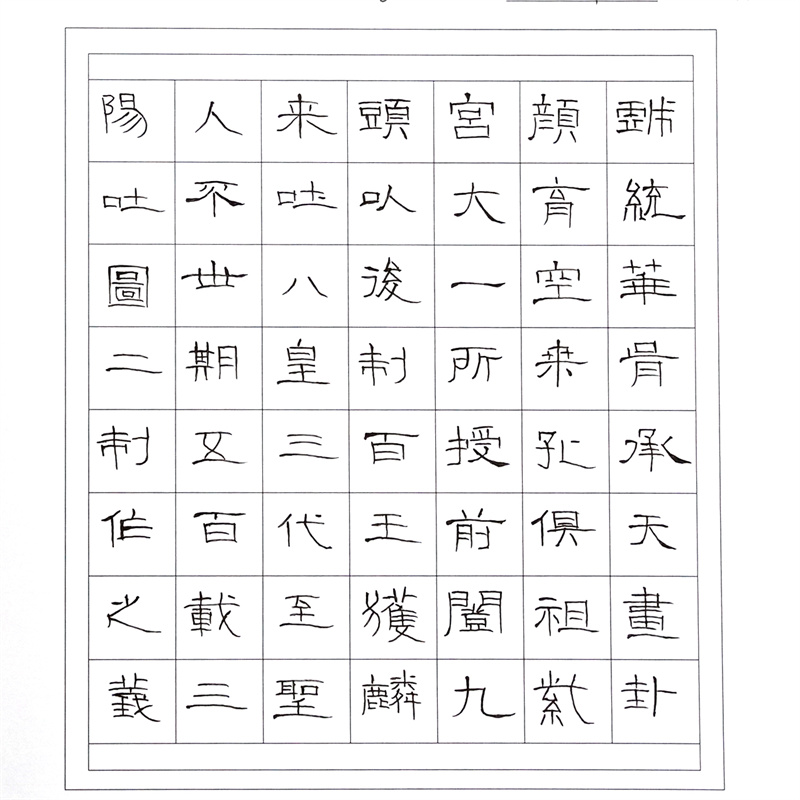 統華胥承天畫卦
顏育空桒孔俱祖紫
宮大一所授前闓九
頭以後制百王獲麟
来吐八皇三代至聖
人不世期五百載三
陽吐圖二制作之義